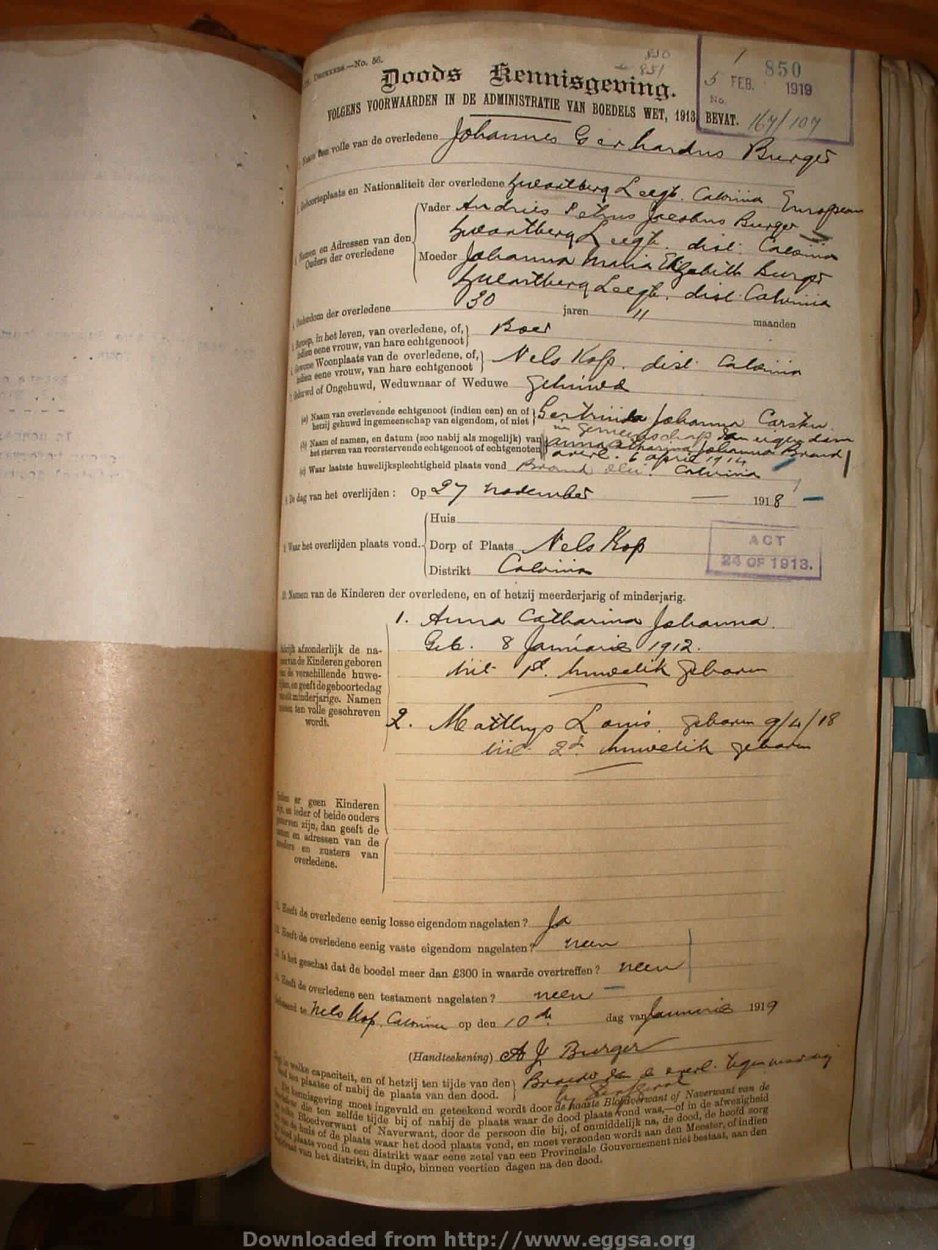 No. 56.
850
851
Doods Kennisgeving.
VOLGENS VOORWAARDEN IN DE ADMINISTRATIE VAN BOEDELS WET, 1913 BEVAT.
1
850
5 FEB. 1919
No.
167/107
volle van de overledene Johannes Gerhardus Burger
Geboorteplaats en Nationaliteit der overledene Zwaartberg Leegte Calvinia European
Namen en Adressen van den Ouders der overledene
Vader Andries Petrus Jacobus Burger
Zwaartberg Leegte. dist. Calvinia
Moeder Johanna Maria Elizabeth Burger
Zwaartberg Leegte. dist. Calvinia
Ouderdom der overledene 30 jaren 11 maanden
Beroep, in het leven, van overledene, of, indien eene vrouw, van hare echtgenoot Boer
Gewone Woonplaats van de overledene, of, indien eene vrouw, van hare echtgenoot Nels Kop. dist. Calvinia
Gehuwd of Ongehuwd, Weduwnaar of Weduwe gehuwd
(a) Naam van overlevende echtgenoot (indien een) en of hetzij gehuwd in gemeenschap van eigendom, of niet Gertruida Johanna Carsten
in gemeenschap van eigendom
(b) Naam of namen, en datum (zoo nabij als mogelijk) van het sterven van voorstervende echtgenoot of echtgenoten Anna Catharina Johanna Brand
overl. 6 April 1914
(c) Waar laatste huwelijksplechtigheid plaats vond Calvinia
De dag van het overlijden: Op 27 November 1918
Waar het overlijden plaats vond.
Huis
Dorp of Plaats Nels Kop
Distrikt Calvinia
ACT
24 OF 1913.
10. Namen van de Kinderen der overledene, en of hetzij meerderjarig of minderjarig.
1. Anna Catharina Johanna.
Geb. 8 Januarie 1912.
uit 1st. huwelik geboren
afzonderlijk de na-
men van de Kinderen geboren
van de verschillende huwe-
lijken, en geeft de geboortedag
van elk minderjarige. Namen
moeten ten volle geschreven
wordt.
2. Matthys Louis. geboren 9/4/18
uit 2de huwelik geboren
Indien er geen Kinderen
zijn, en ieder of beide ouders
gestorven zijn, dan geeft de
namen en adressen van de
broeders en zusters van
overledene.
11. Heeft de overledene eenig losse eigendom nagelaten? Ja
12. Heeft de overledene eenig vaste eigendom nagelaten? neen
13. Is het geschat dat de boedel meer dan £300 in waarde overtreffen? neen
14. Heeft de overledene een testament nagelaten? neen
Gedateerd te Nels Kop, Calvinia op den 10de dag van Januarie 1919
(Handteekening) A J Burger
in welke capaciteit, en of hetzij ten tijde van den dood ten plaatse of nabij de plaats van den dood. Broeder van de overl. tegenwoordig
by
De Kennisgeving moet ingevuld en geteekend wordt door de naaste Bloedverwant of Naverwant van de
overledene die ten zelfde tijde bij of nabij de plaats waar de dood plaats vond was,—of in de afwezigheid
van zulke Bloedverwant of Naverwant, door de persoon die bij, of onmiddelijk na, de dood, de hoofd zorg
van de huis of de plaats waar het dood plaats vond, en moet verzonden wordt aan den Meester, of indien
de dood plaats vond in een distrikt waar eene zetel van een Provinciale Gouvernement niet bestaat, aan den
Magistraat van het distrikt, in duplo, binnen veertien dagen na den dood.
Downloaded from http://www.eggsa.org